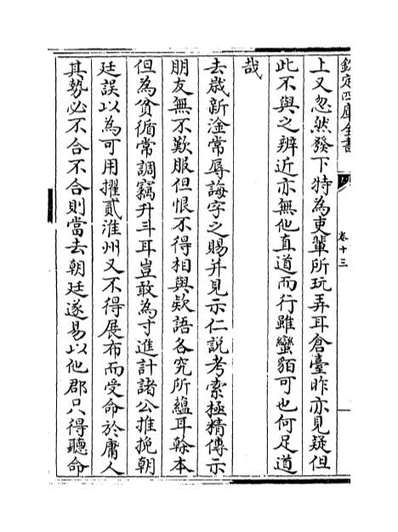 欽定四庫全書
卷十三
上又忽然發下特為吏輩所玩弄耳倉臺昨亦見疑但
此不與之辨近亦無他直道而行雖蠻貊可也何足道
哉
去嵗新淦常辱誨字之賜并見示仁説考索極精傳示
朋友無不歎服但恨不得相與欵語各究所藴耳榦本
但為貧循常調竊升斗耳豈敢為寸進計諸公推挽朝
廷誤以為可用擢貳淮州又不得展布而受命於庸人
其勢必不合不合則當去朝廷遂易以他郡只得聽命